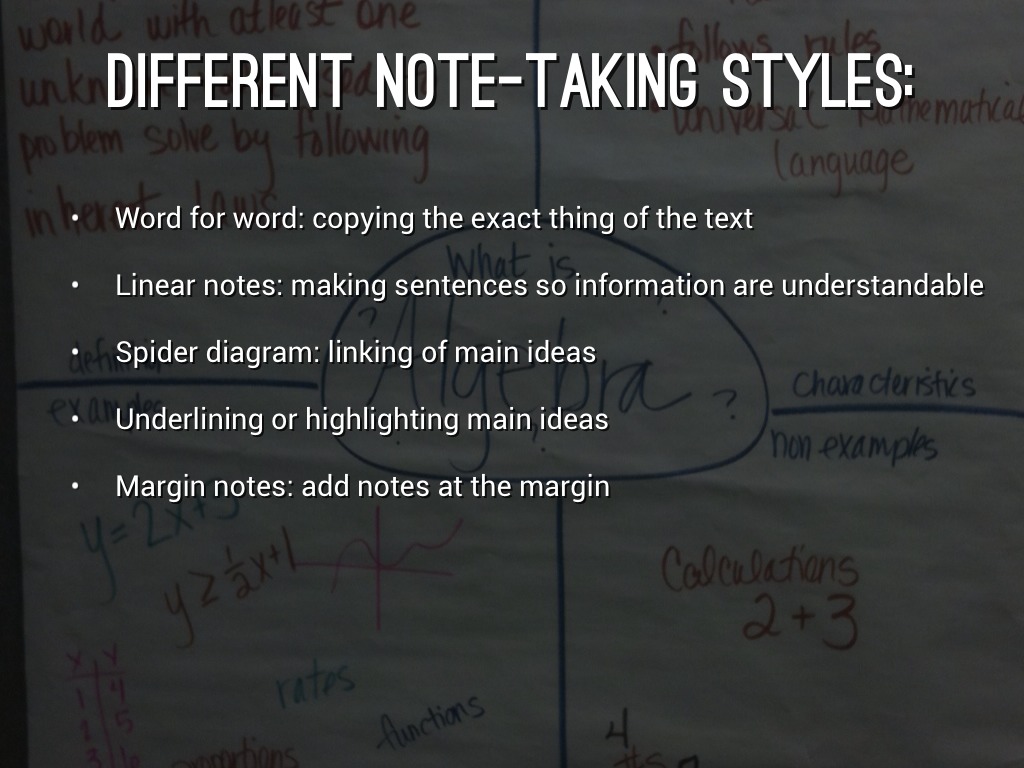 world with atleast one
DIFFERENT NOTE-TAKING STYLES:
follows rules
problem solve by following
universal mathematical
language
• Word for word: copying the exact thing of the text
• Linear notes: making sentences so information are understandable
• Spider diagram: linking of main ideas
• Underlining or highlighting main ideas
• Margin notes: add notes at the margin
What is
Algebra
?
?
?
examples
characteristics
non examples
y = 2x+5
y ≥ 1/2x+1
Calculations
2+3
x y
1 4
2 5
3 6
rates
functions
4